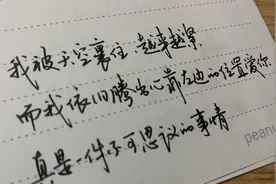 我被天空裹住 越来越紧
而我依旧腾出心前左边的位置爱你
真是一件不可思议的事情
pean